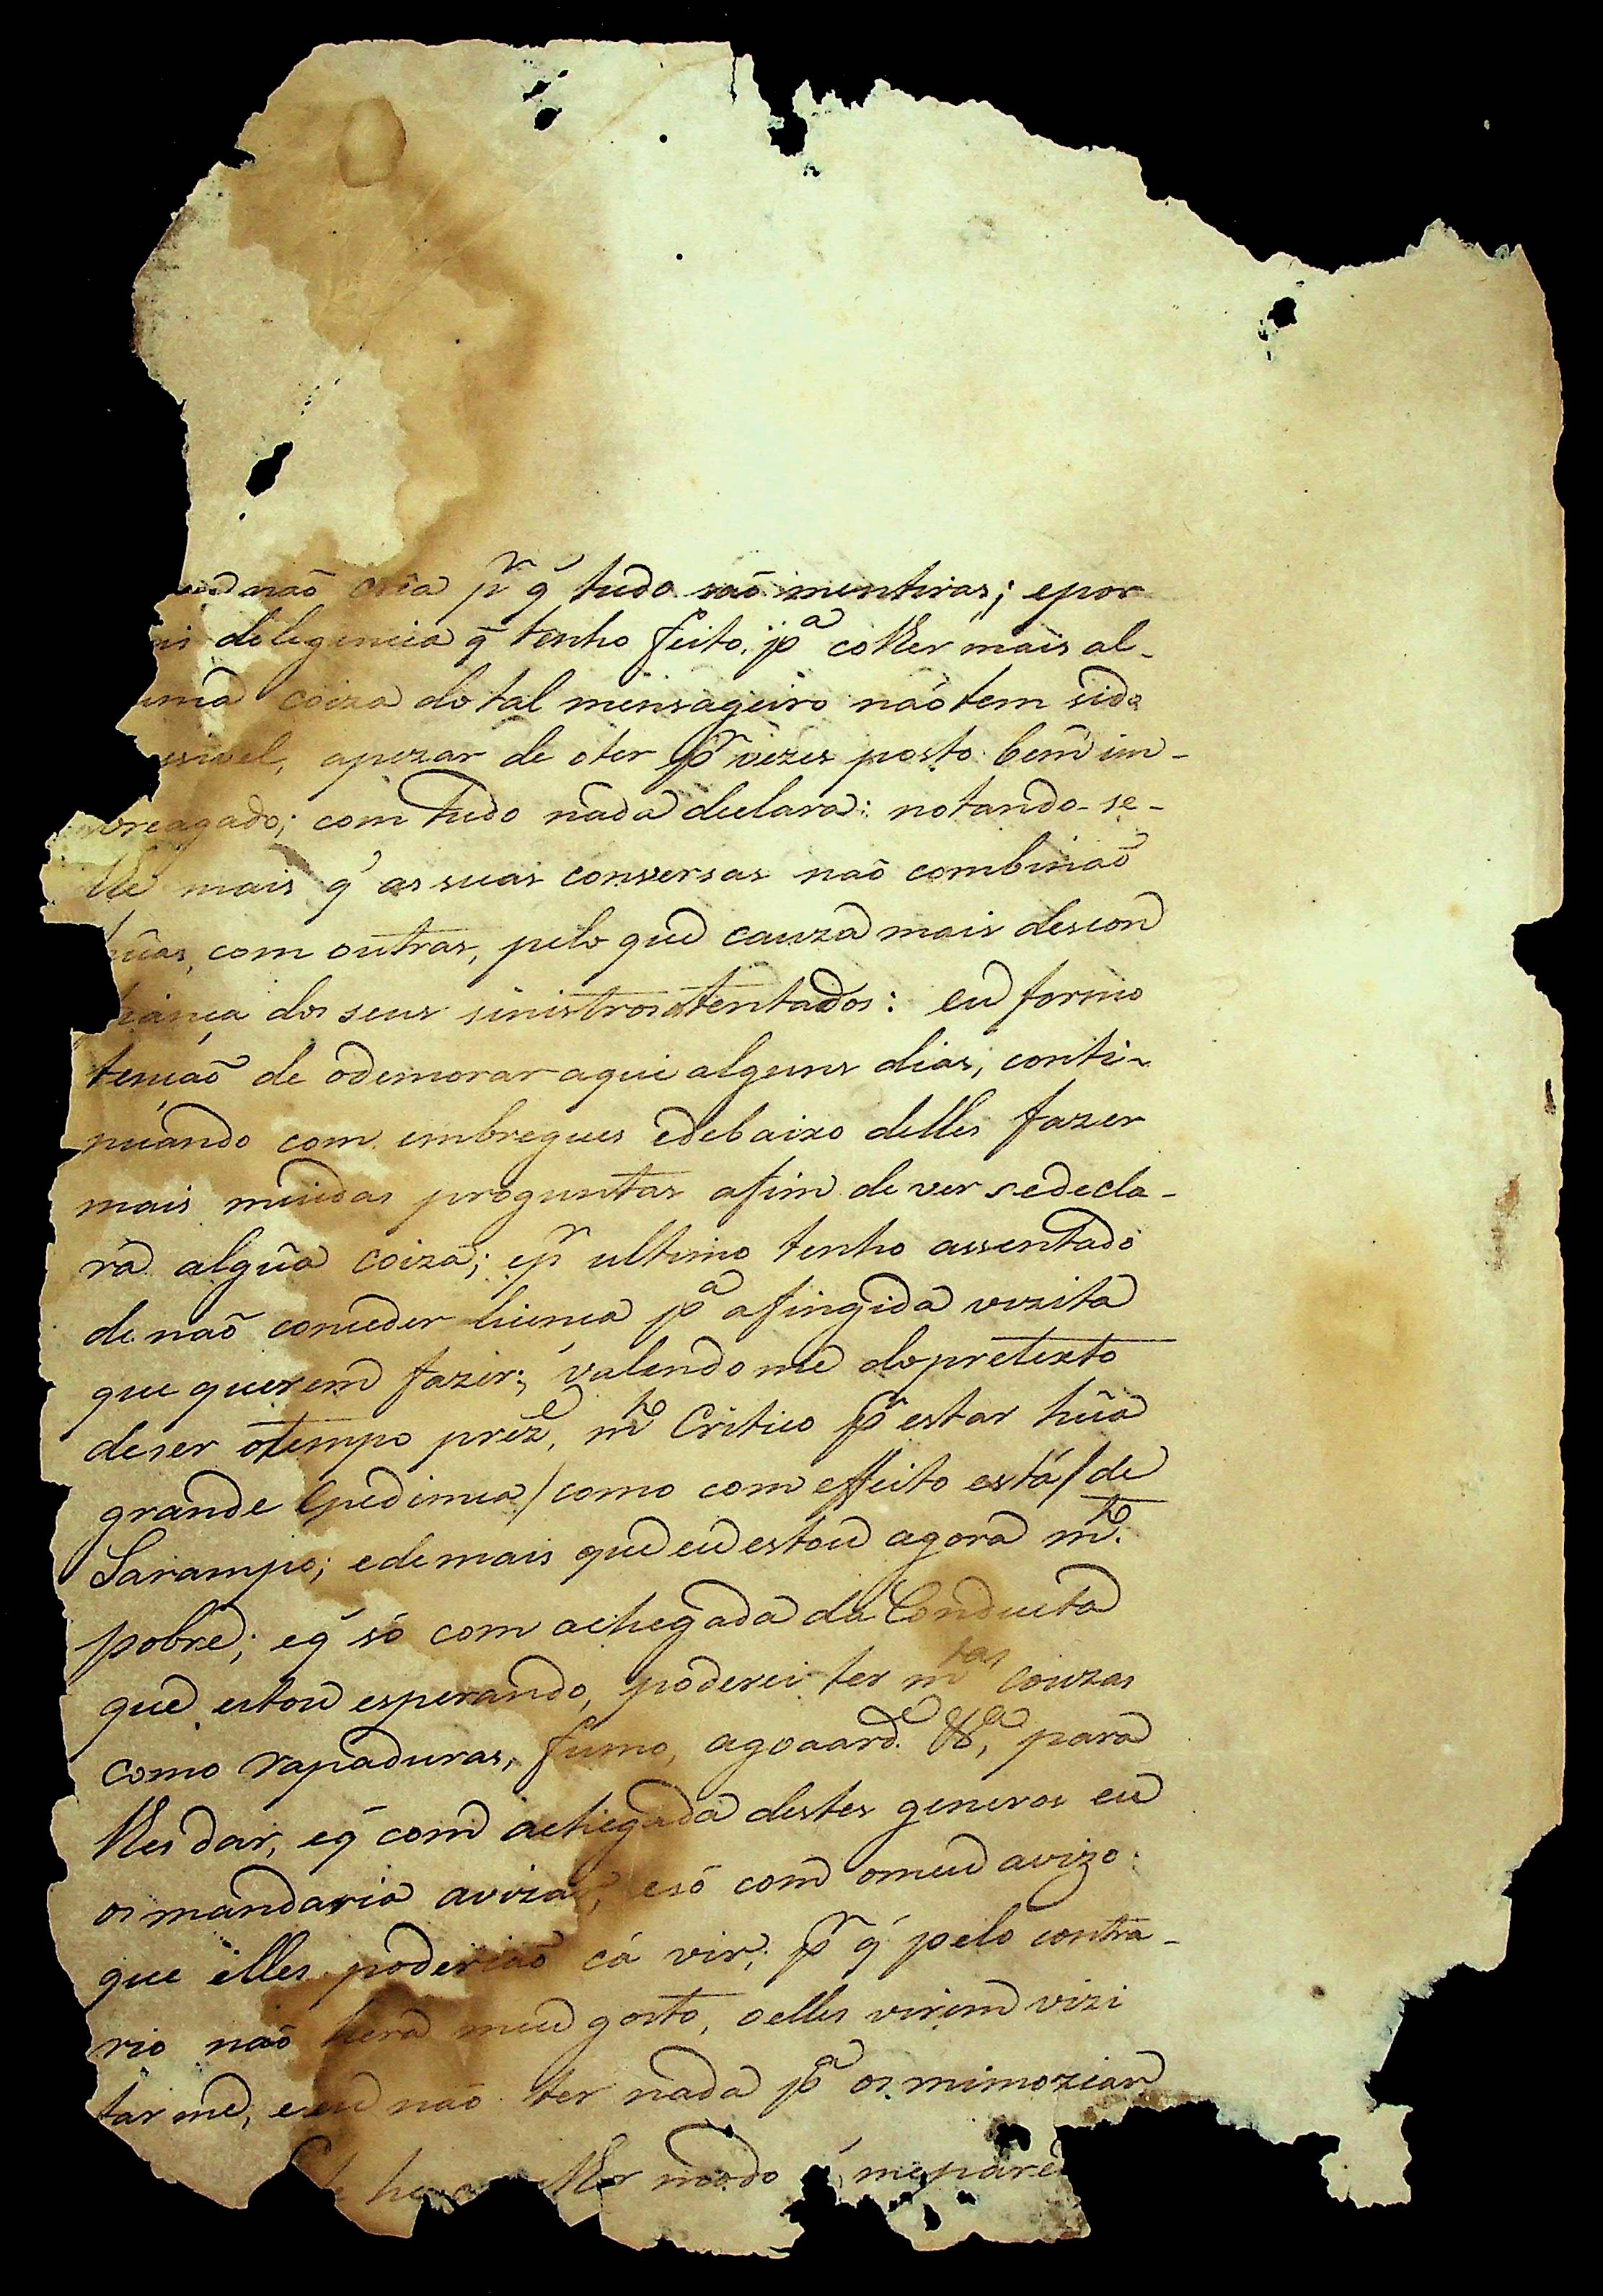 não crêa pr q̃ tudo são mentiras; epor
is deligencia q̃ tenho feito, pa colher mais al-
uma coiza do tal mensageiro não tem sido
ssivel, apezar de oter pr vezes posto bem im-
breagado; com tudo nada declara: notando-se-
lhe mais q̃ as suas conversas não combinão
hũas, com outras, pelo que cauza mais descon
fiança dos seus sinistros atentados: eu formo
tenção de odemorar aqui alguns dias, conti-
nuando com embregues edebaixo delles fazer
mais miudas proguntas afim de ver sedecla-
ra algũa coiza; epr ultimo tenho assentado
de não conceder licença pa afingida vizita
que querem fazer; valendo me dopretexto
deser otempo preze, mto Critico pr estar hũa
grande Epedemia / como com effeito está / de
Sarampo; edemais que eu estou agora mto
pobre; eq̃ só com achegada da Conducta
que estou esperando, poderei ter mtas couzas
como rapaduras, fumo, agoaarde &a, para
lhes dar, eq̃ com achegada destes generos eu
os mandaria avizar, esó com omeu avizo
que elles poderião cá vir; pr q̃ pelo contra-
rio não hera meu gosto, o elles virem vizi
tar me, e eu não ter nada pa os mimoziar
lhor modo q̃ mepare